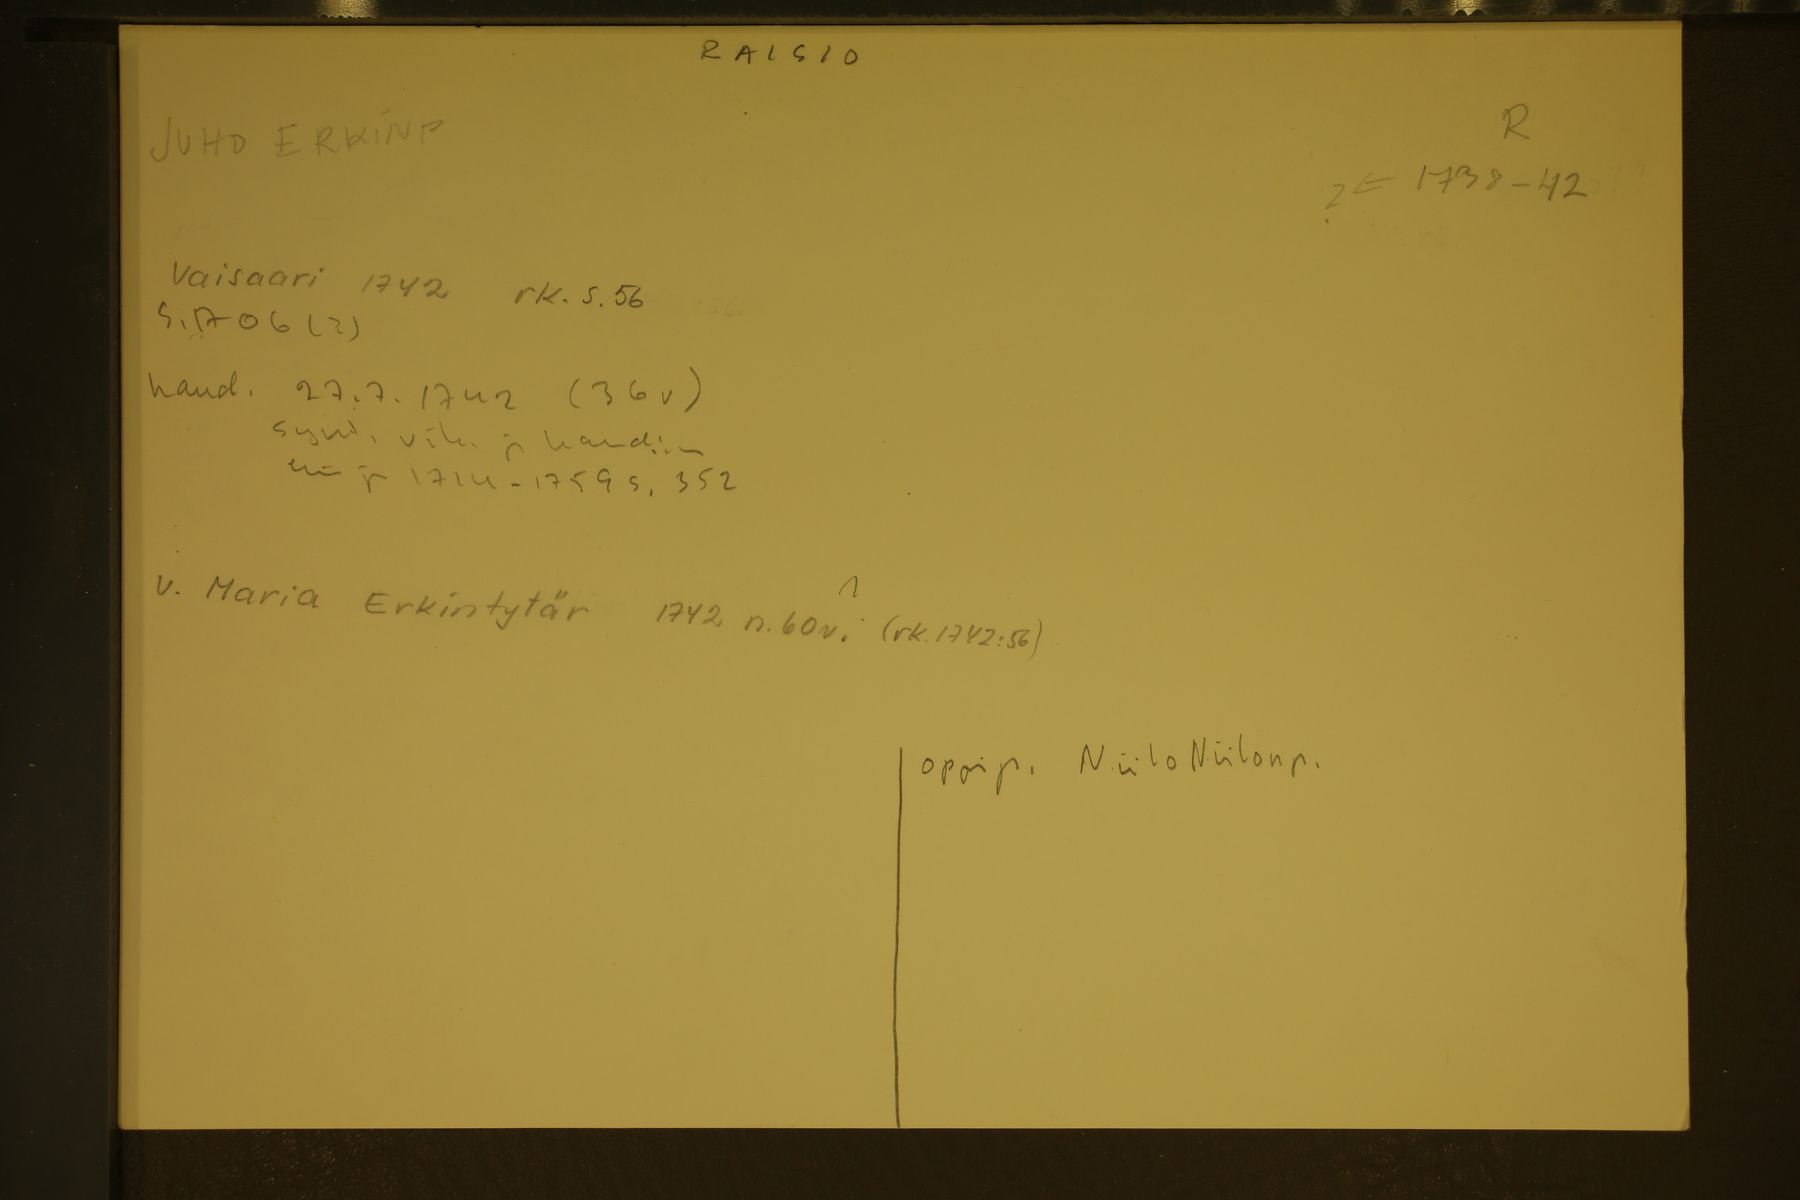 RAISIO
JUHO ERKINP
R
? ⇐ 1738-42
Vaisaari 1742 rk. s. 56
S. 1706 (?)
haud. 27.7. 1742 (36 v)
synt. vih. ja haud.
1714-1759 s. 352
v. Maria Erkintytär 1742 n. 60 v. (rk. 1742:56)
oppip. Niilo Niilonp.